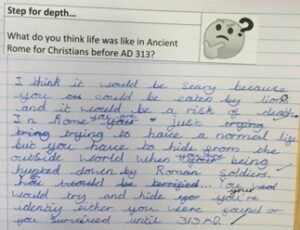 Step for depth...
What do you think life was like in Ancient
Rome for Christians before AD 313?
I think it would be scary because
you could be eaten by lions
and it would be a risk of death.
In Rome you are just trying
trying to have a normal life
but you have to hide from the
outside world when you're being
hunted down by Roman soldiers.
You would be terrified... You
would try and hide your
identity either you were found or
you survived until 313 AD.